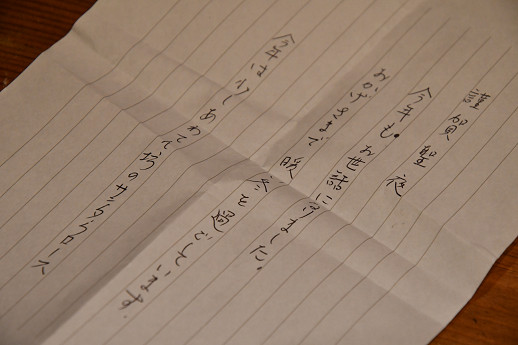 謹賀聖夜
今年もお世話になりました。
おかげさまで暖冬を過ごしています.
今年は少しあわてて坊のサンタクロース